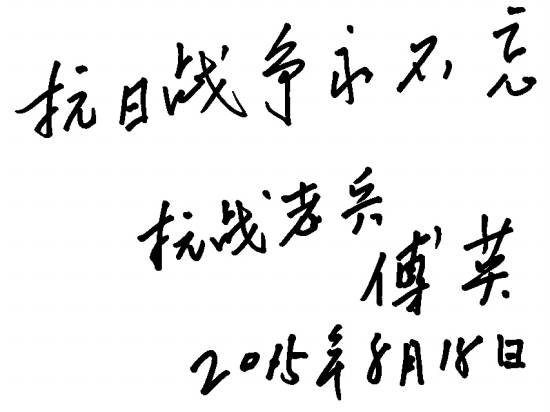 抗日战争永不忘
抗战老兵
傅英
2015年8月18日